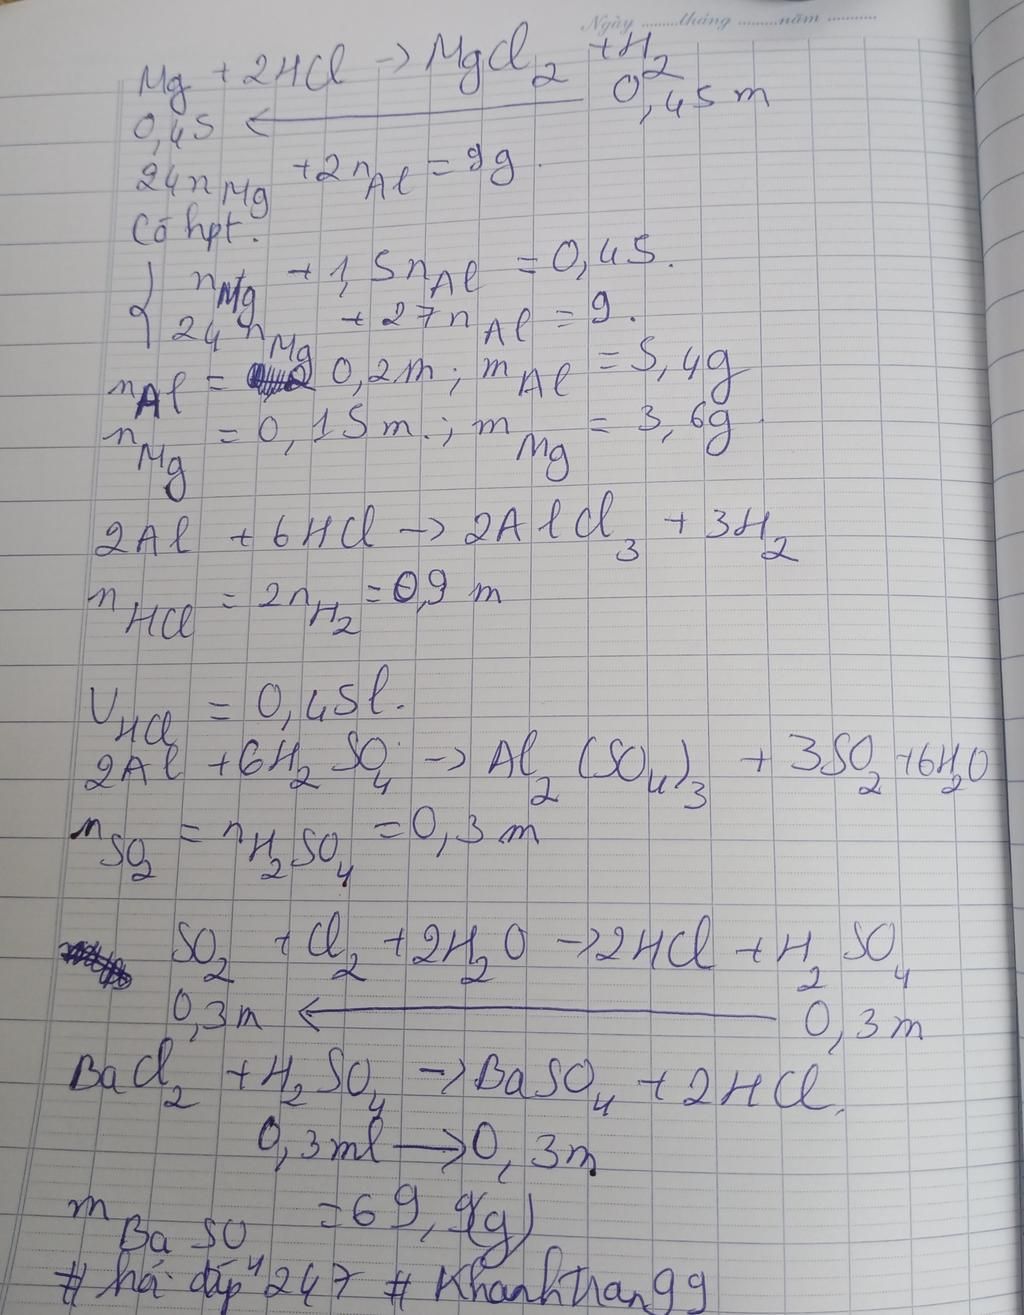 Ngày ........tháng ........năm ..........
Mg + 2HCl → MgCl₂ + H₂
0,45 ← 0,45 m
24n_Mg + 2n_Al = 9g.
Có hpt.
{ n_Mg + 1,5n_Al = 0,45.
24n_Mg + 27n_Al = 9.
n_Al = 0,2m; m_Al = 5,4g
n_Mg = 0,15m.; m_Mg = 3,6g
2Al + 6HCl → 2AlCl₃ + 3H₂
n_HCl = 2n_H₂ = 0,9 m
V_HCl = 0,45l.
2Al + 6H₂SO₄ → Al₂(SO₄)₃ + 3SO₂ + 6H₂O
n_SO₂ = n_H₂SO₄ = 0,3 m
SO₂ + Cl₂ + 2H₂O → 2HCl + H₂SO₄
0,3m ← 0,3m
BaCl₂ + H₂SO₄ → BaSO₄ + 2HCl.
0,3ml → 0,3m
m_BaSO₄ = 69,9(g)
# hỏi đáp 247 # Khanhthan99